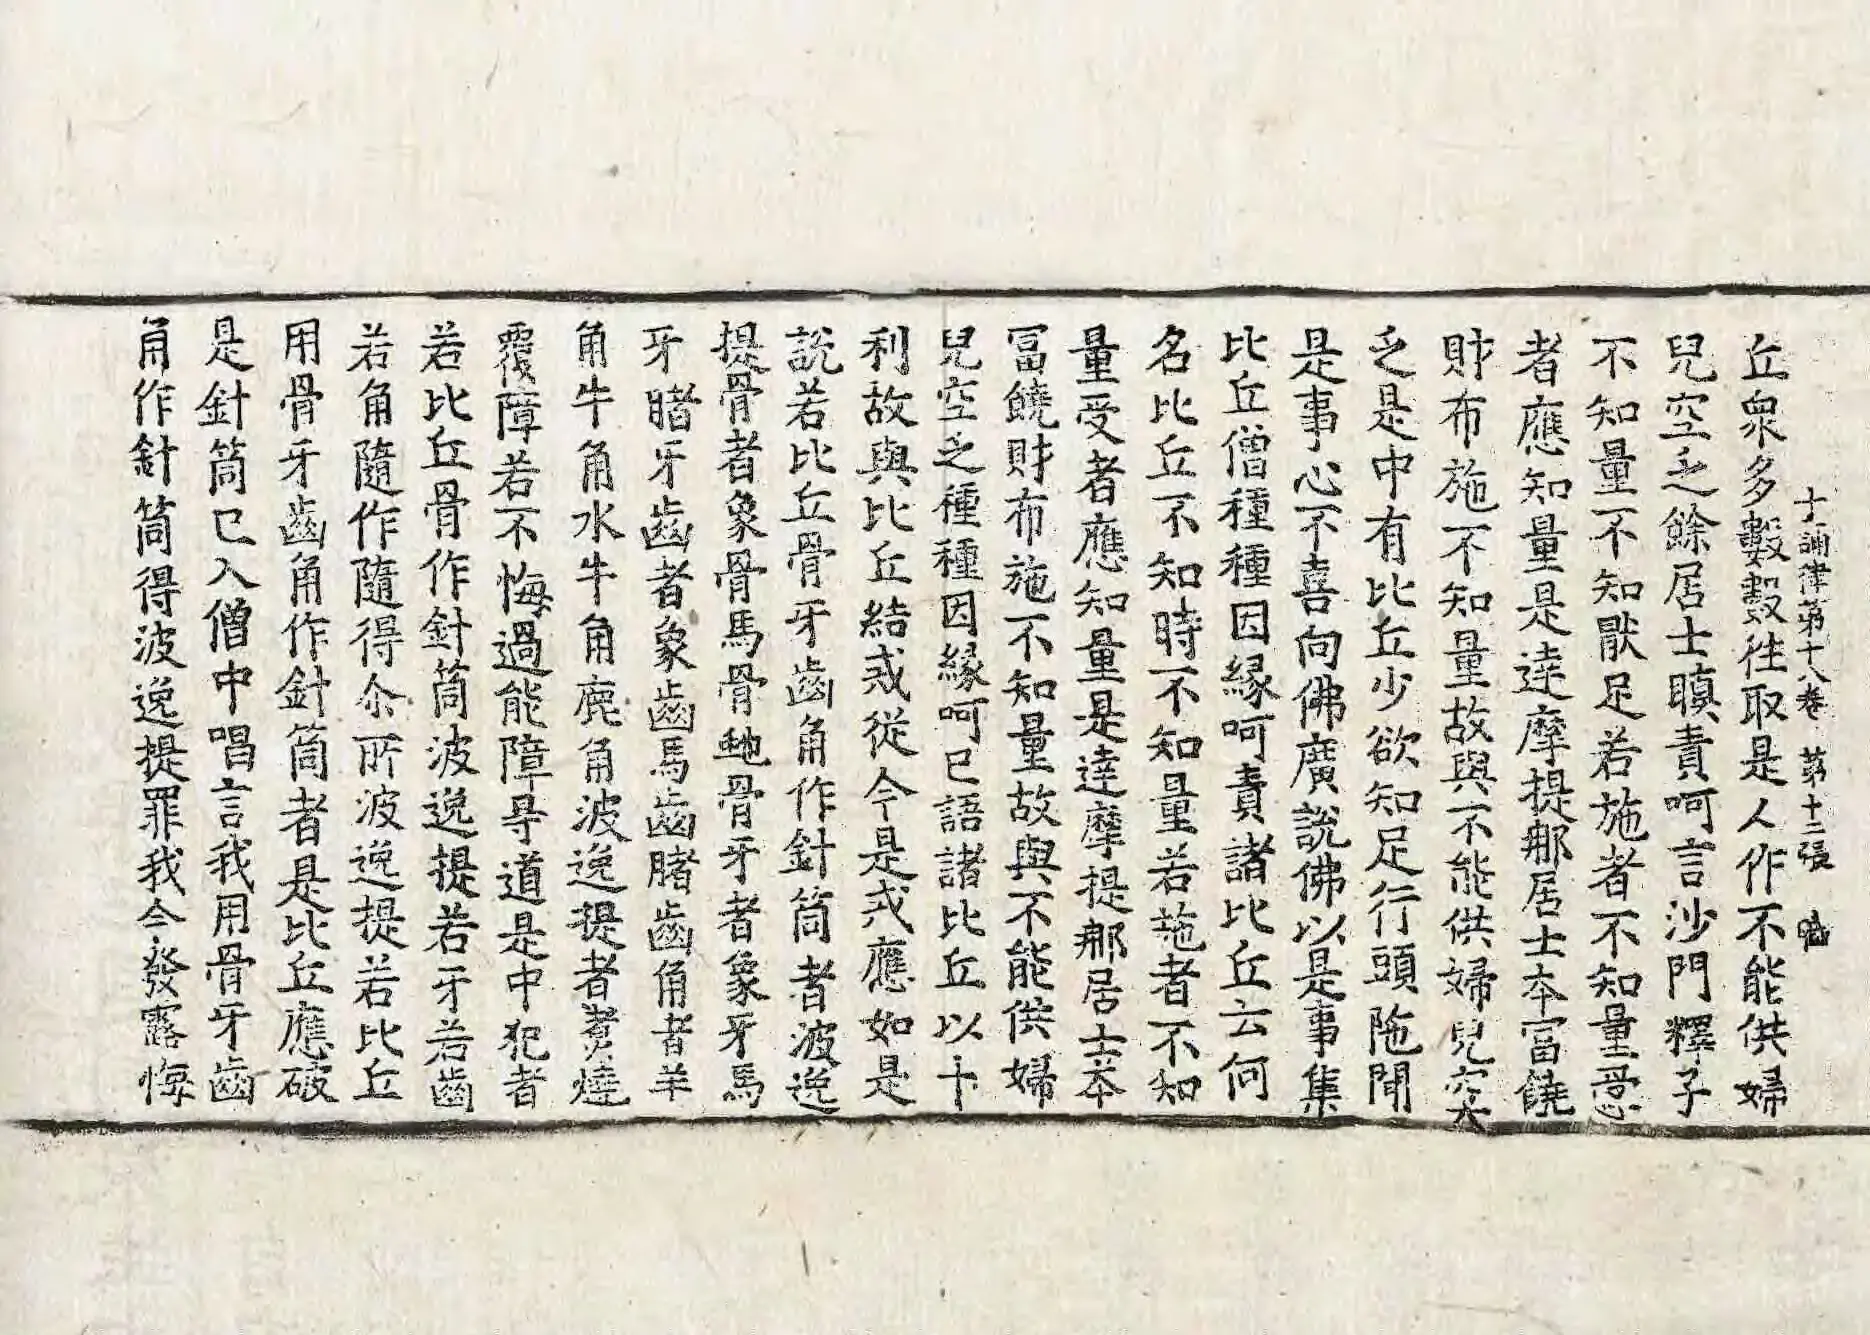 十誦律第十八卷 第十二張
丘衆多數數往取是人作不能供婦
兒空乏餘居士瞋責呵言沙門釋子
不知量不知猒足若施者不知量受
者應知量是達摩提那居士本冨饒
財布施不知量故與不能供婦兒空
乏是中有比丘少欲知足行頭陁聞
是事心不喜向佛廣說佛以是事集
比丘僧種種因緣呵責諸比丘云何
名比丘不知時不知量若施者不知
量受者應知量是達摩提那居士本
冨饒財布施不知量故與不能供婦
兒空乏種種因緣呵已語諸比丘以十
利故與比丘結戒從今是戒應如是
說若比丘骨牙齒角作針筒者波逸
提骨者象骨馬骨虵骨牙者象牙馬
牙䐗牙齒者象齒馬齒䐗齒角者羊
角牛角水牛角鹿角波逸提者煑燒
覆障若不悔過能障㝵道是中犯者
若比丘骨作針筒波逸提若牙若齒
若角隨作隨得尒所波逸提若比丘
用骨牙齒角作針筒者是比丘應破
是針筒已入僧中唱言我用骨牙齒
角作針筒得波逸提罪我今發露悔